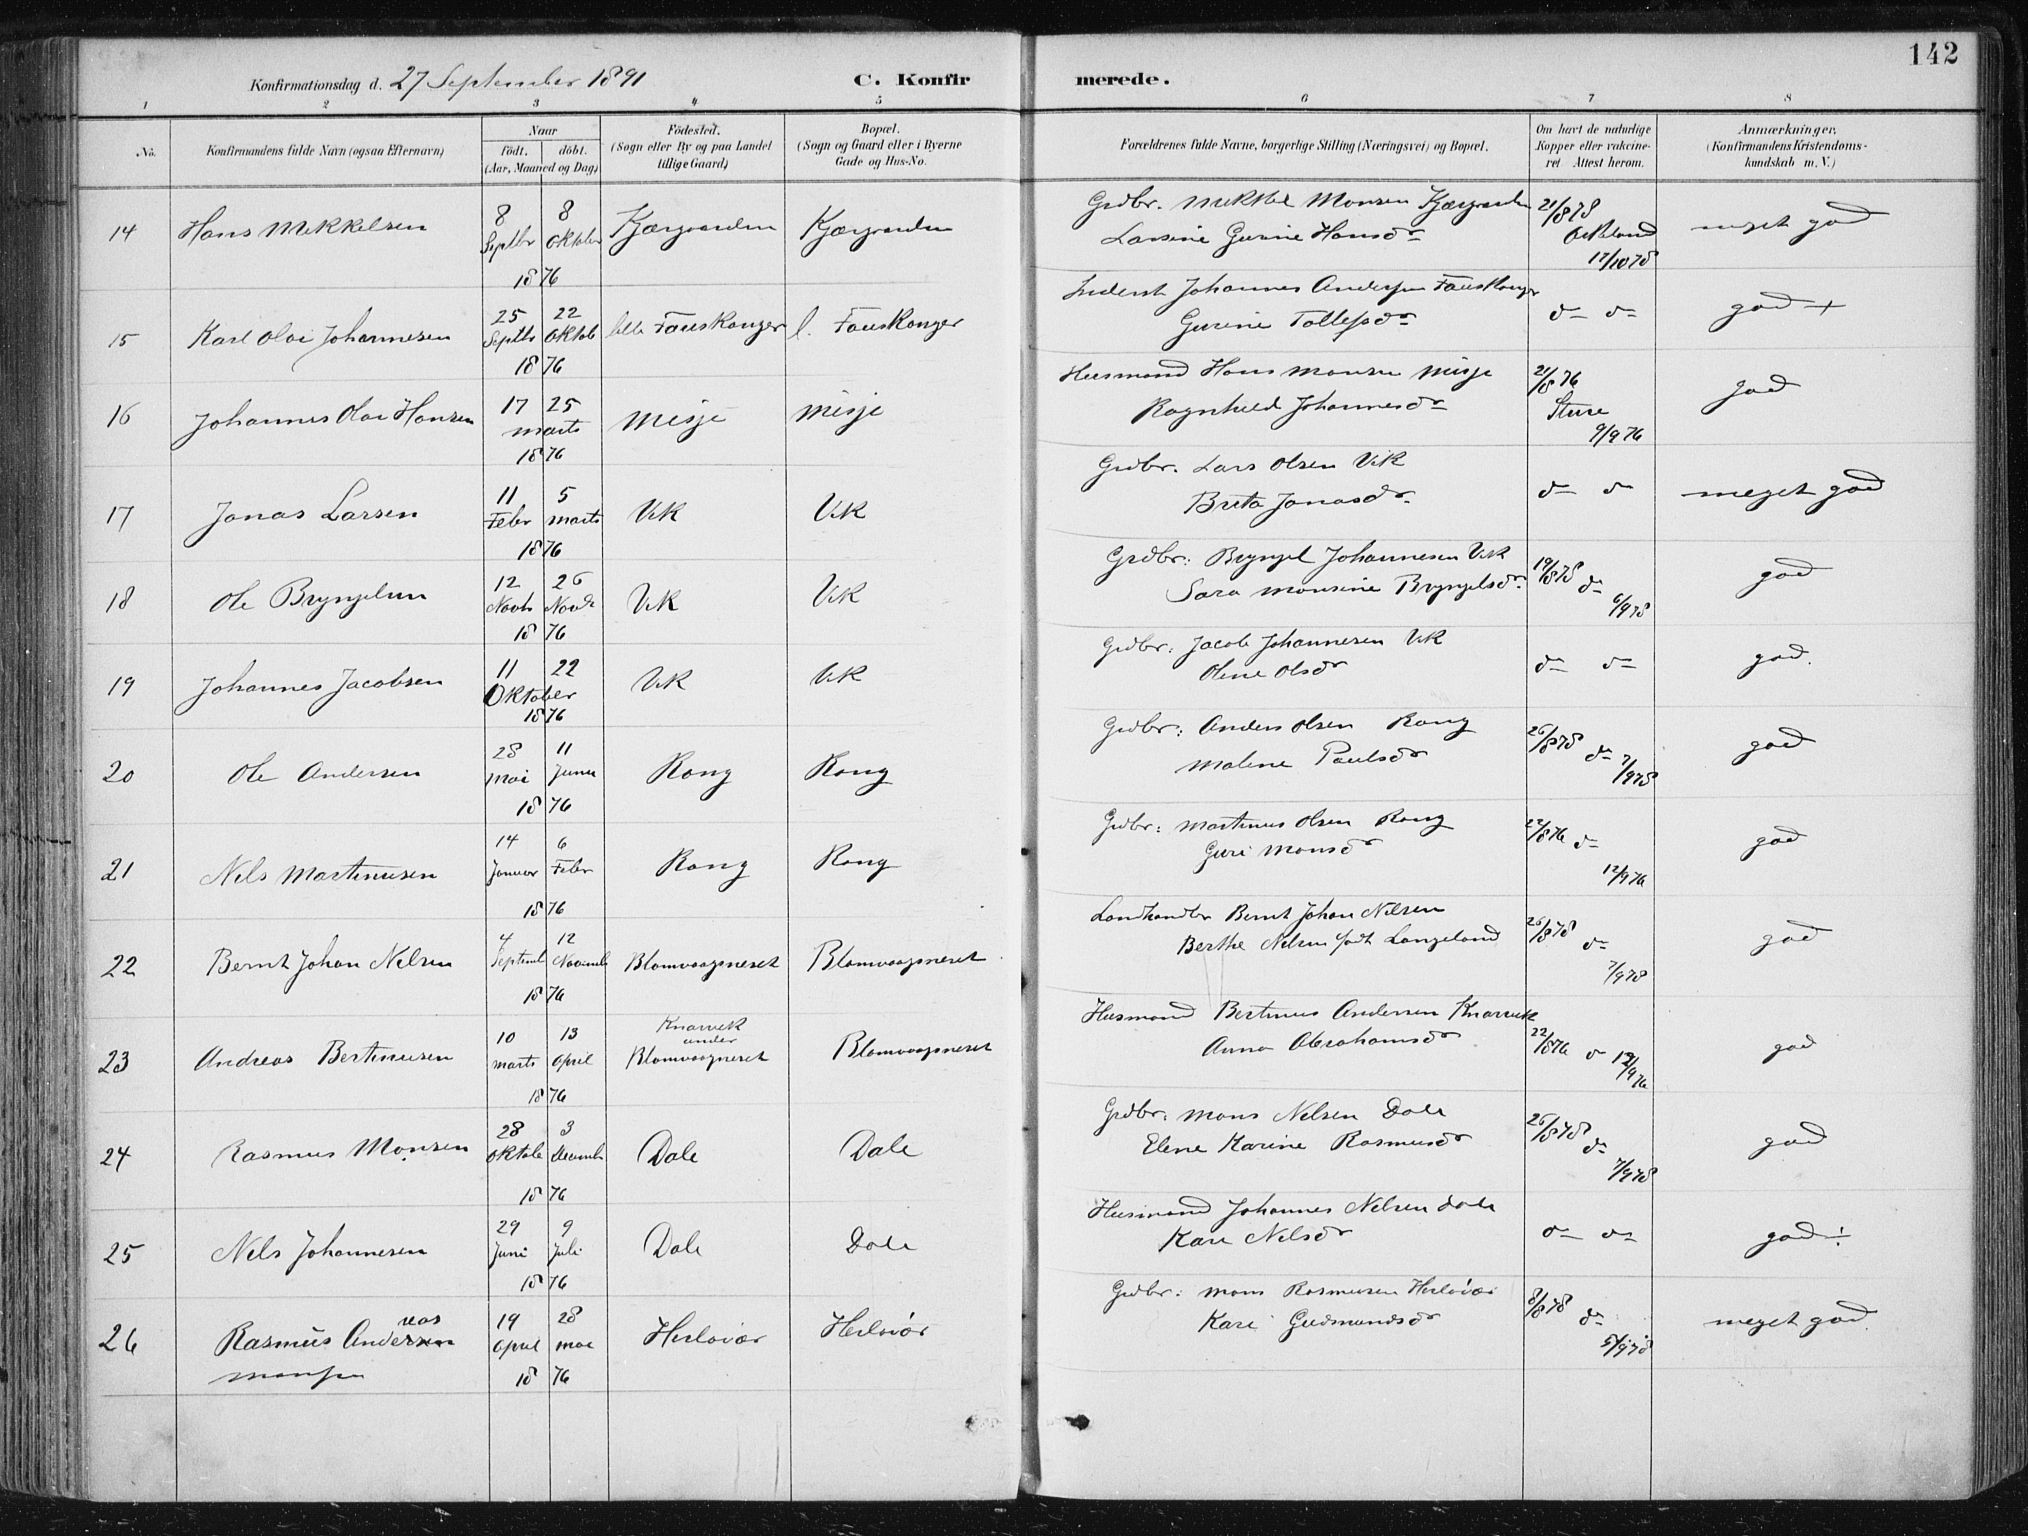 142
Konfirmationsdag d. 27 September 1891 C. Konfirmerede.
1 2 3 4 5 6 7 8
No. Konfirmandens fulde Navn (ogsaa Efternavn) Naar födt. döbt. (Aar, Maaned og Dag) Födested. (Sogn eller By og paa Landet tillige Gaard) Bopæl. (Sogn og Gaard eller i Byerne Gade og Hus-No. Forældrenes fulde Navne, borgerlige Stilling (Næringsvei) og Bopæl. Om havt de naturlige Kopper eller vakcineret Attest herom. Anmærkninger. (Konfirmandens Kristendomskundskab m. V.)
14 Hans Mekkelsen 8 Septbr 8 Oktober 1876 Kjærgaarden Kjærgaarden Grdbr. Mekkel Monsen Kjærgaarden
Larsine Gurine Hansdr 21/8 78 17/10 78 meget god
15 Karl Olai Johannesen 25 Septbr 22 Oktob 1876 lille Fauskanger l. Fauskanger Inderst Johannes Andersen Fauskanger
Gurine Tollefsdr d- d- god +
16 Johannes Olai Hansen 17 25 marts 1876 Misje Misje Husmand Hans Monsen Misje
Ragnhild Johannesdr 21/8 76 Sture 9/9 76 god
17 Jonas Larsen 11 Febr 5 marts 1876 Vik Vik Grdbr. Lars Olsen Vik
Brita Jonasdr. d- d- meget god
18 Ole Bryngelsen 12 Novbr 26 Novbr 1876 Vik Vik Grdbr: Bryngel Johannesen Vik
Sara Monsine Bryngelsdr. 19/8 78 d- 6/9 78 god
19 Johannes Jacobsen 11 22 Oktober 1876 Vik Vik Grdbr: Jacob Johannesen Vik
Oline Olsdr d- d- god.
20 Ole Andersen 28 Mai 11 Juni 1876 Rong Rong Grdbr: Anders Olsen Rong
Malene Paulsdr 26/8 78 d- 7/9 78 god
21 Nels Martinusen 14 Januar 6 Febr 1876 Rong Rong Grdbr: Martinus Olsen Rong
Guri Monsdr 22/8 76 d- 12/9 76 god
22 Bernt Johan Nelsen 4 Septemb 12 Novemb 1876 Blomvaagsneset Blomvaagsneset Landhandler Bernt Johan Nelsen
Berthe Nelsen født Langeland 26/8 78 d- 7/9 78 god
23 Andreas Bertinusen 10 marts 13 April 1876 Knarvik under Blomvaagneset Blomvaagsneset Husmand Bertinus Andersen Knarvik
Anna Abrahamsdr 22/8 76 d 12/9 76 god
24 Rasmus Monsen 28 Oktob 3 Decemb 1876 Dale Dale Grdbr. Mons Nelsen Dale
Elene Karine Rasmusdr 26/8 78 d- 7/9 78 god
25 Nels Johannesen 29 Juni 9 Juli 1876 Dale Dale Husmand Johannes Nelsen Dale
Kari Nelsdr d- d- god ÷
26 Rasmus Andersen reas
Monsen 19 April 28 mai 1876 Herløvær Herløvær Grdbr: Mons Rasmusen Herløvær
Kari Gudmundsdr 8/8 78 d- 5/9 78 meget god